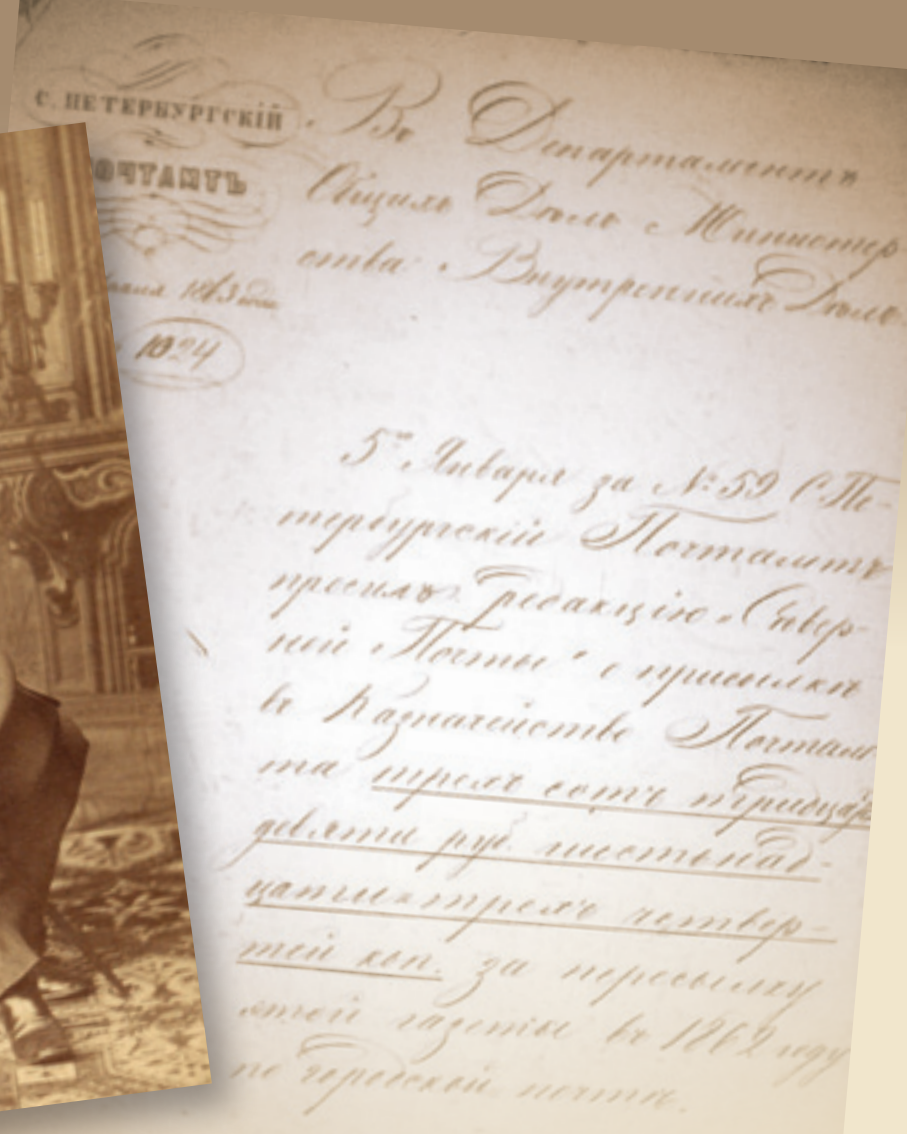 С. ПЕТЕРБУРГСКІЙ
ПОЧТАМТЪ
1863 года
1024
Въ Департаментъ
Общихъ Дѣлъ Министер
ства Внутреннихъ Дѣлъ.
5го Января за №: 59 С.Пе-
тербургскій Почтамтъ
просилъ Редакцію „Сѣвер-
ной Почты" о присылкѣ
въ Казначейство Почтам
та трехъ сотъ тридца
девяти руб. шестьнад-
цати и трехъ четвер-
тей коп. за пересылку
этой газеты въ 1862 году
по городской почтѣ.